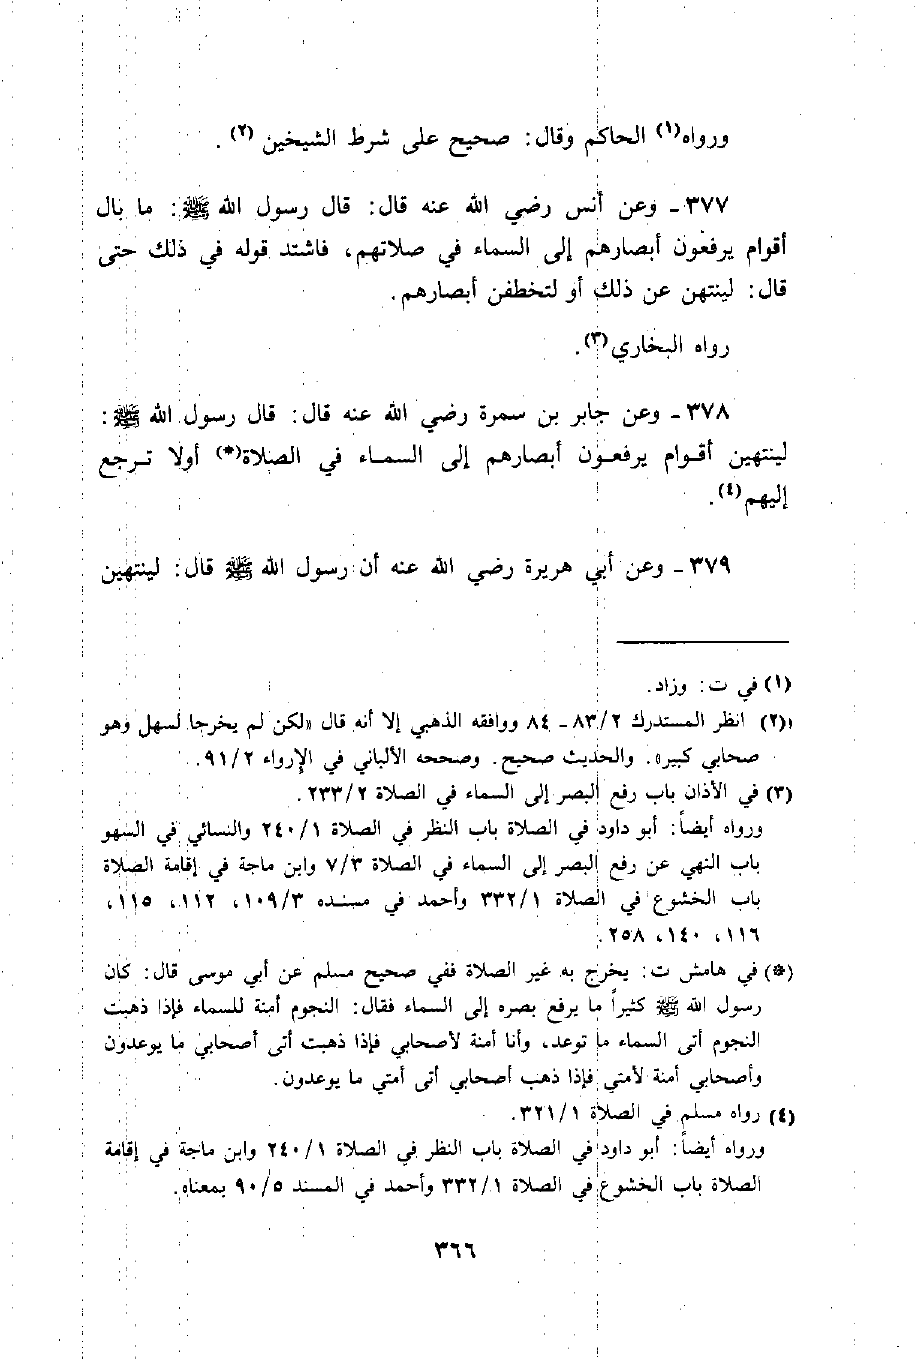 ورواه(١) الحاكم وقال: صحيح على شرط الشيخين (٢).
٣٧٧ ـ وعن أنس رضي الله عنه قال: قال رسول الله ﷺ: ما بال
أقوام يرفعون أبصارهم إلى السماء في صلاتهم، فاشتد قوله في ذلك حتى
قال: لينتهن عن ذلك أو لتخطفن أبصارهم.
رواه البخاري(٣).
٣٧٨ ـ وعن جابر بن سمرة رضي الله عنه قال: قال رسول الله ﷺ:
لينتهين أقوام يرفعون أبصارهم إلى السماء في الصلاة(*) أولا ترجع
إليهم(٤).
٣٧٩ ـ وعن أبي هريرة رضي الله عنه أن رسول الله ﷺ قال: لينتهين
(١) في ت: وزاد.
(٢) انظر المستدرك ٨٣/٢ ـ ٨٤ ووافقه الذهبي إلا أنه قال «لكن لم يخرجا لسهل وهو
صحابي كبير». والحديث صحيح. وصححه الألباني في الإرواء ٩١/٢.
(٣) في الأذان باب رفع البصر إلى السماء في الصلاة ٢٣٣/٢.
ورواه أيضاً: أبو داود في الصلاة باب النظر في الصلاة ٢٤٠/١ والنسائي في السهو
باب النهي عن رفع البصر إلى السماء في الصلاة ٧/٣ وابن ماجة في إقامة الصلاة
باب الخشوع في الصلاة ٣٣٢/١ وأحمد في مسنده ١٠٩/٣، ١١٢، ١١٥،
١١٦، ١٤٠، ٢٥٨.
(*) في هامش ت: يخرج به غير الصلاة ففي صحيح مسلم عن أبي موسى قال: كان
رسول الله ﷺ كثيراً ما يرفع بصره إلى السماء فقال: النجوم أمنة للسماء فإذا ذهبت
النجوم أتى السماء ما توعد، وأنا أمنة لأصحابي فإذا ذهبت أتى أصحابي ما يوعدون
وأصحابي أمنة لأمتي فإذا ذهب أصحابي أتى أمتي ما يوعدون.
(٤) رواه مسلم في الصلاة ٣٢١/١.
ورواه أيضاً: أبو داود في الصلاة باب النظر في الصلاة ٢٤٠/١ وابن ماجة في إقامة
الصلاة باب الخشوع في الصلاة ٣٣٢/١ وأحمد في المسند ٩٠/٥ بمعناه.
٣٦٦